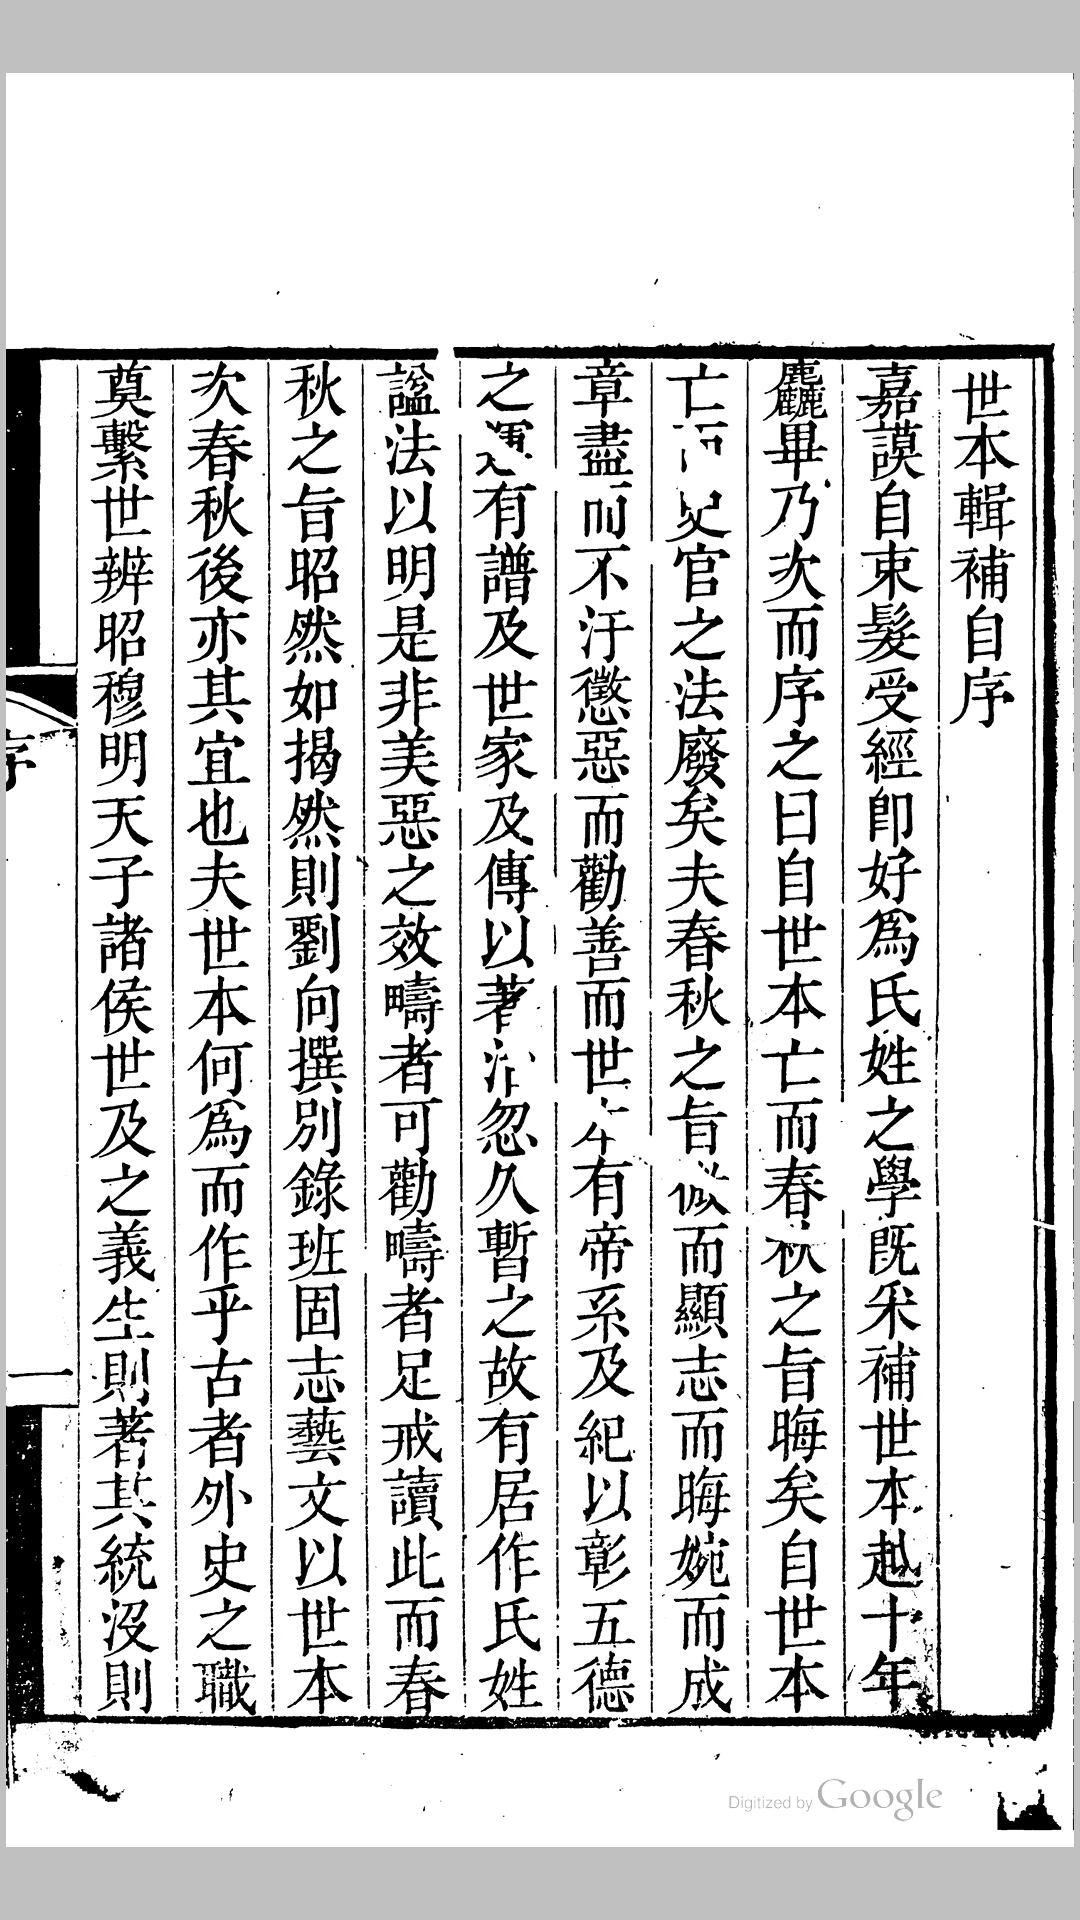 世本輯補自序
嘉謨自束髮受經卽好爲氏姓之學旣采補世本越十年
麤畢乃次而序之曰自世本亡而春秋之旨晦矣自世本
亡而史官之法廢矣夫春秋之旨微而顯志而晦婉而成
章盡而不汙懲惡而勸善而世本有帝系及紀以彰五德
之運有譜及世家及傳以著治忽久暫之故有居作氏姓
諡法以明是非美惡之效疇者可勸疇者足戒讀此而春
秋之旨昭然如揭然則劉向撰別錄班固志藝文以世本
次春秋後亦其宜也夫世本何爲而作乎古者外史之職
奠繫世辨昭穆明天子諸侯世及之義生則著其統沒則
序
一
Digitized by Google